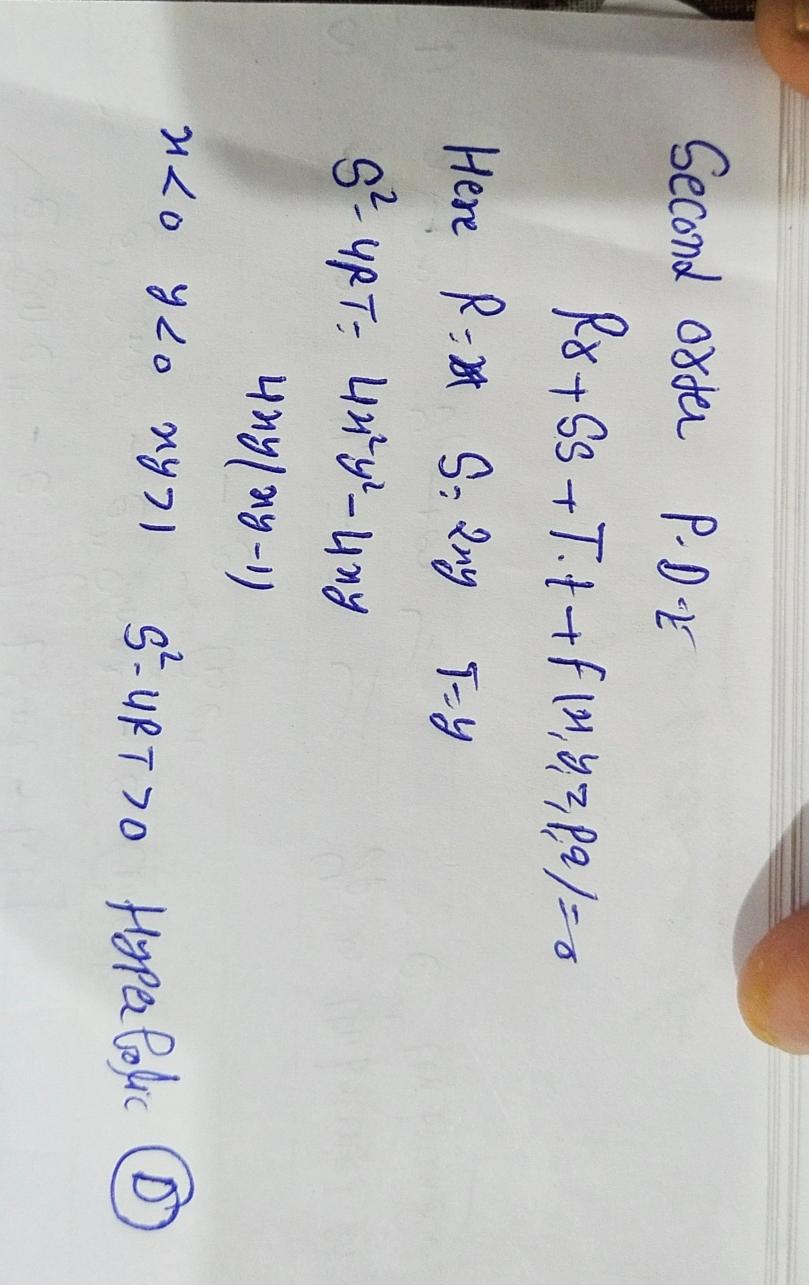 Second order P.D.E
Rr + Ss + T.t + f(x,y,z,p,q) = 0
Here R = x S = 2xy T = y
S² - 4RT = 4x²y² - 4xy
4xy(xy-1)
x<0 y<0 xy>1 S² - 4RT >0 Hyperbolic D